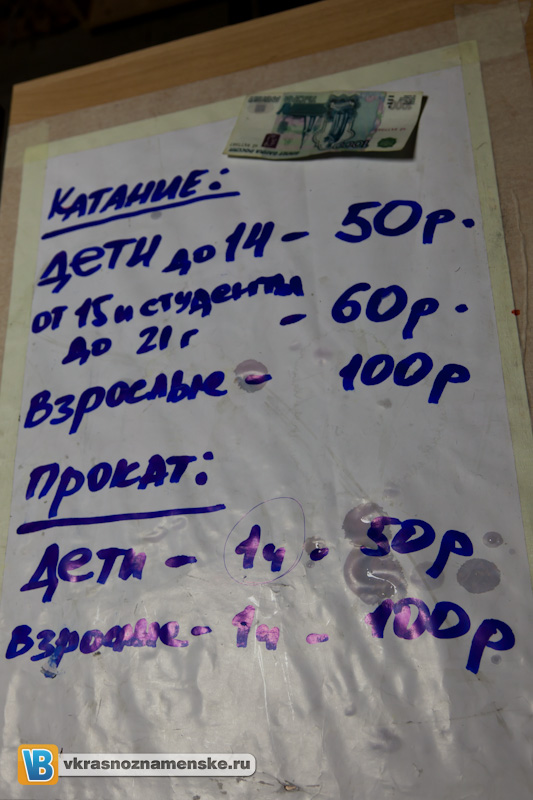 Катание:
Дети до 14 - 50р.
от 15 и студенты
до 21 г - 60р.
Взрослые - 100р
Прокат:
Дети - 1ч - 50р
Взрослые - 1ч - 100р
vkrasnoznamenske.ru